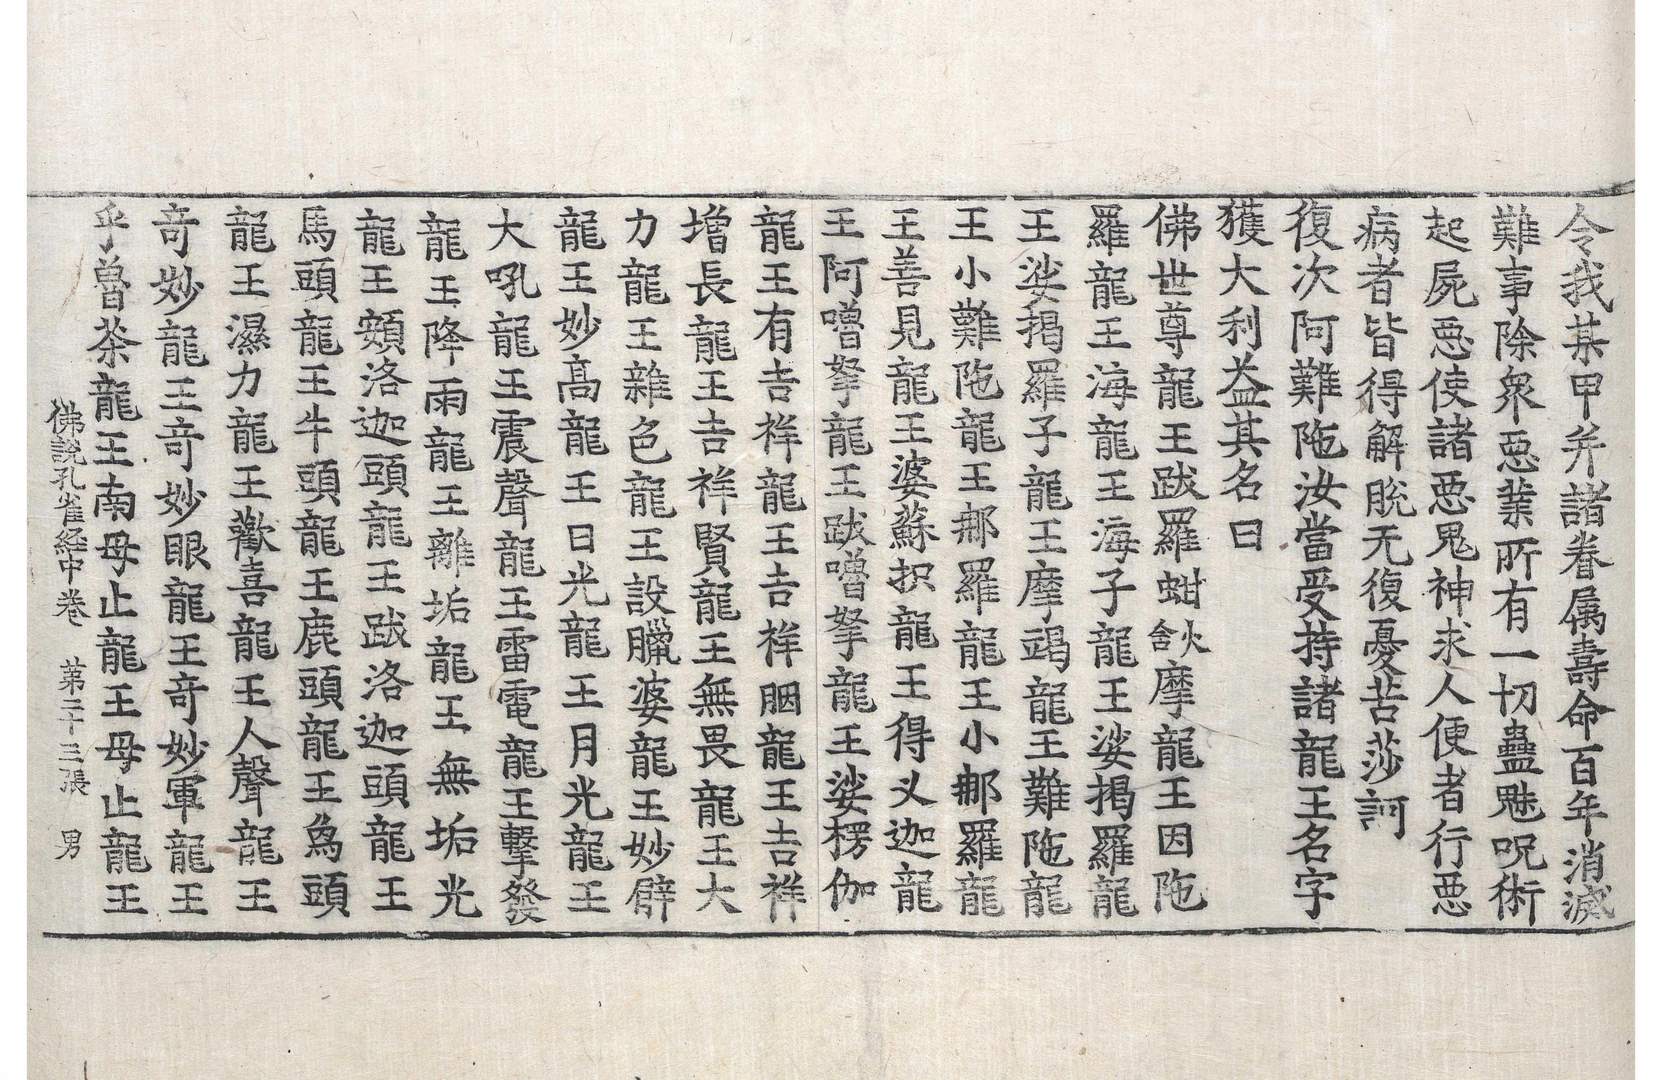 令我某甲并諸眷属壽命百年消滅
難事除衆惡業所有一切蠱魅呪術
起屍惡使諸惡鬼神求人便者行惡
病者皆得解脫无復憂苦莎訶
復次阿難陁汝當受持諸龍王名字
獲大利益其名曰
佛世尊龍王跋羅蚶火含摩龍王因陁
羅龍王海龍王海子龍王娑揭羅龍
王娑揭羅子龍王摩竭龍王難陁龍
王小難陁龍王那羅龍王小那羅龍
王善見龍王婆蘇枳龍王得叉迦龍
王阿嚕拏龍王跋嚕拏龍王娑楞伽
龍王有吉祥龍王吉祥胭龍王吉祥
增長龍王吉祥賢龍王無畏龍王大
力龍王雜色龍王設臘婆龍王妙臂
龍王妙高龍王日光龍王月光龍王
大吼龍王震聲龍王雷電龍王擊發
龍王降雨龍王離垢龍王無垢光
龍王頞洛迦頭龍王跋洛迦頭龍王
馬頭龍王牛頭龍王鹿頭龍王烏頭
龍王濕力龍王歡喜龍王人聲龍王
奇妙龍王奇妙眼龍王奇妙軍龍王
乎魯茶龍王南母止龍王母止龍王
佛說孔雀経中卷 第二十三張 男